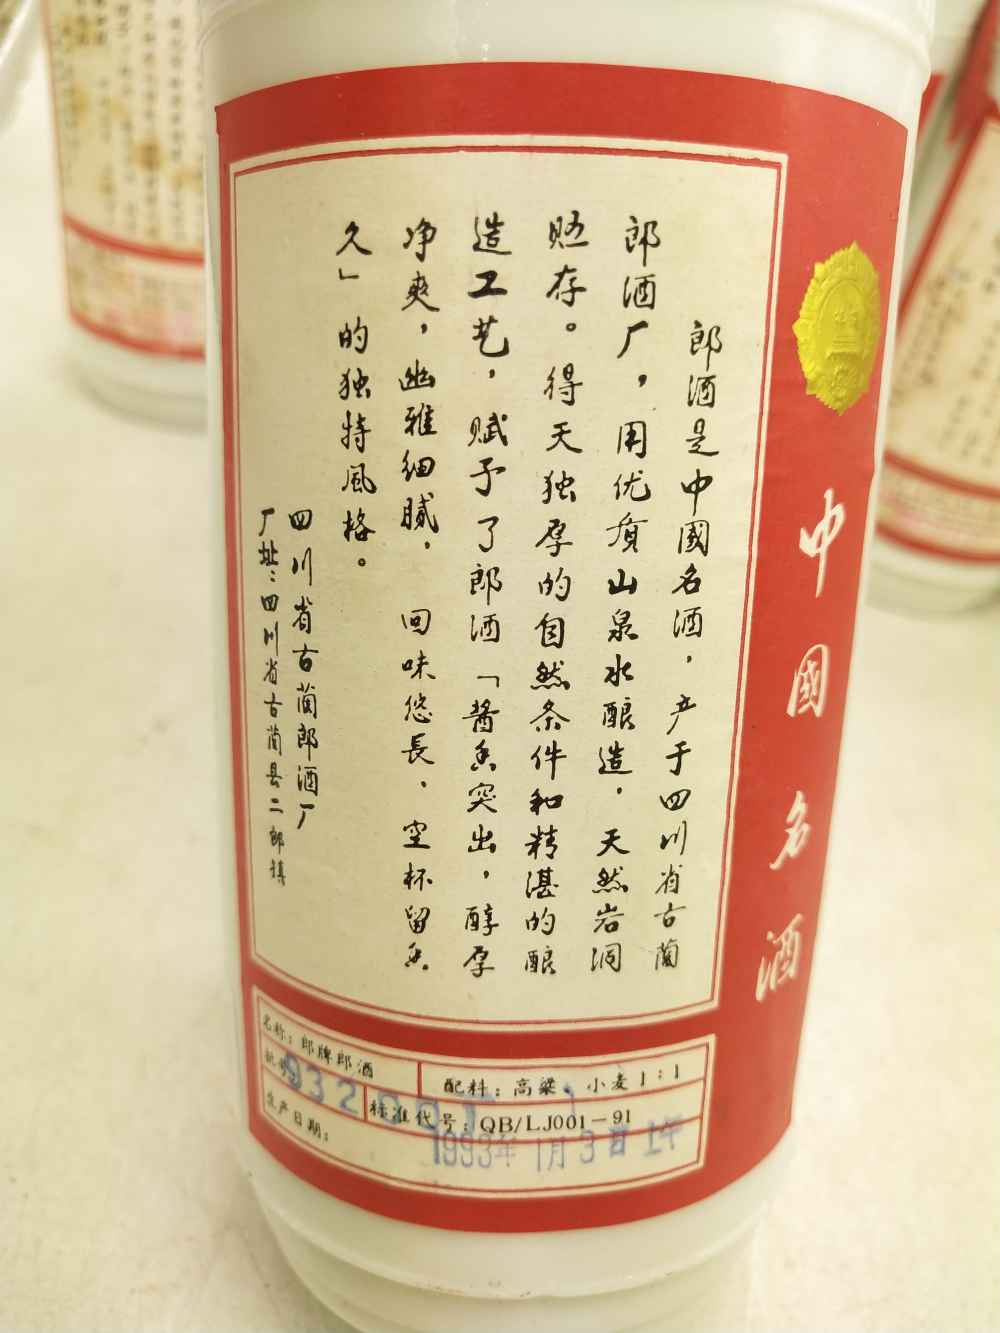 中國名酒
郎酒是中國名酒，产于四川省古蔺
郎酒厂，用优质山泉水酿造，天然岩洞
贮存。得天独厚的自然条件和精湛的酿
造工艺，赋予了郎酒「酱香突出，醇厚
净爽，幽雅细腻，回味悠長、空杯留香
久」的独特風格。
四川省古蔺郎酒厂
厂址：四川省古蔺县二郎镇
名称：郎牌郎酒
配料：高粱、小麦 1：1
批号：
标准代号：QB/LJ001-91
生产日期：1993年 1月 3日 上午